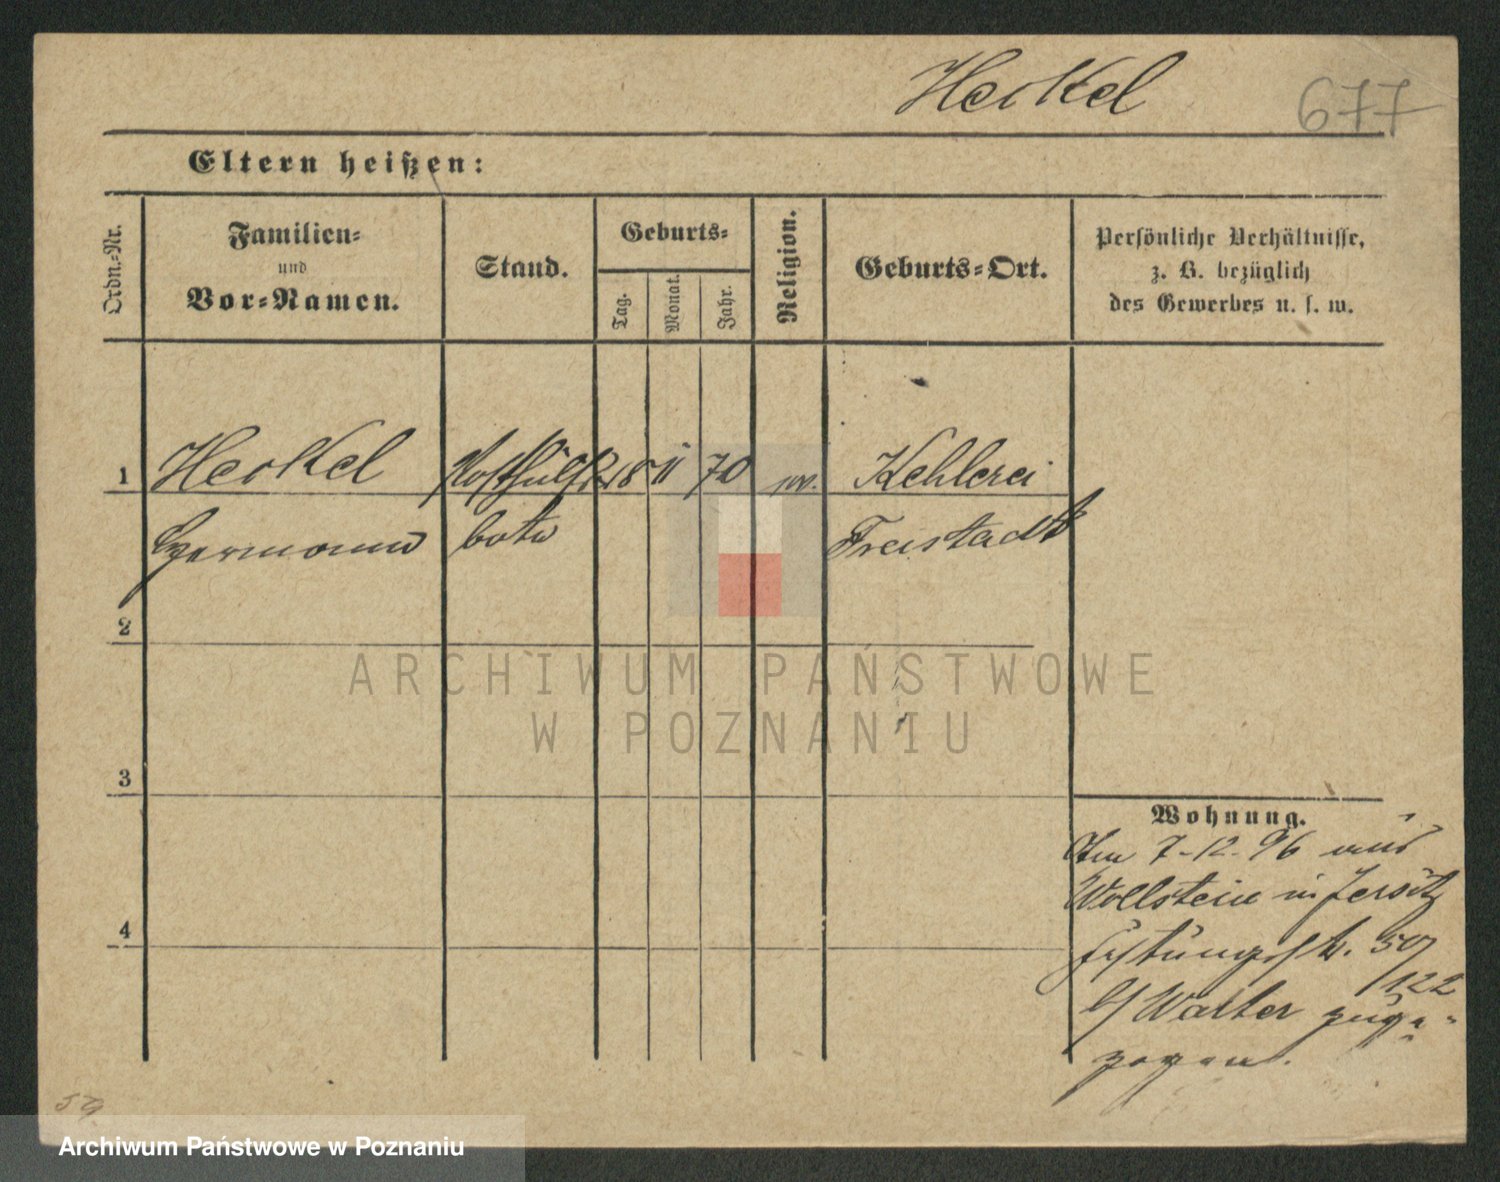 Heikel
677
Eltern heißen:
Ordn.-Nr.
Familien-
und
Vor-Namen.
Stand.
Geburts-
Tag.
Monat.
Jahr.
Religion.
Geburts-Ort.
Persönliche Verhältnisse,
z. B. bezüglich
des Gewerbes u. s. w.
1 Heikel Posthülfs 18 11 70 ev. Kehlerei
Hermann bote Freistadt
2
3
4
Wohnung.
Am 7-12-96 aus
Wollstein in Jersitz
Festungsstr. 50/
122
b/ Walter zuge-
zogen.
59.
ARCHIWUM PAŃSTWOWE
W POZNANIU
Archiwum Państwowe w Poznaniu